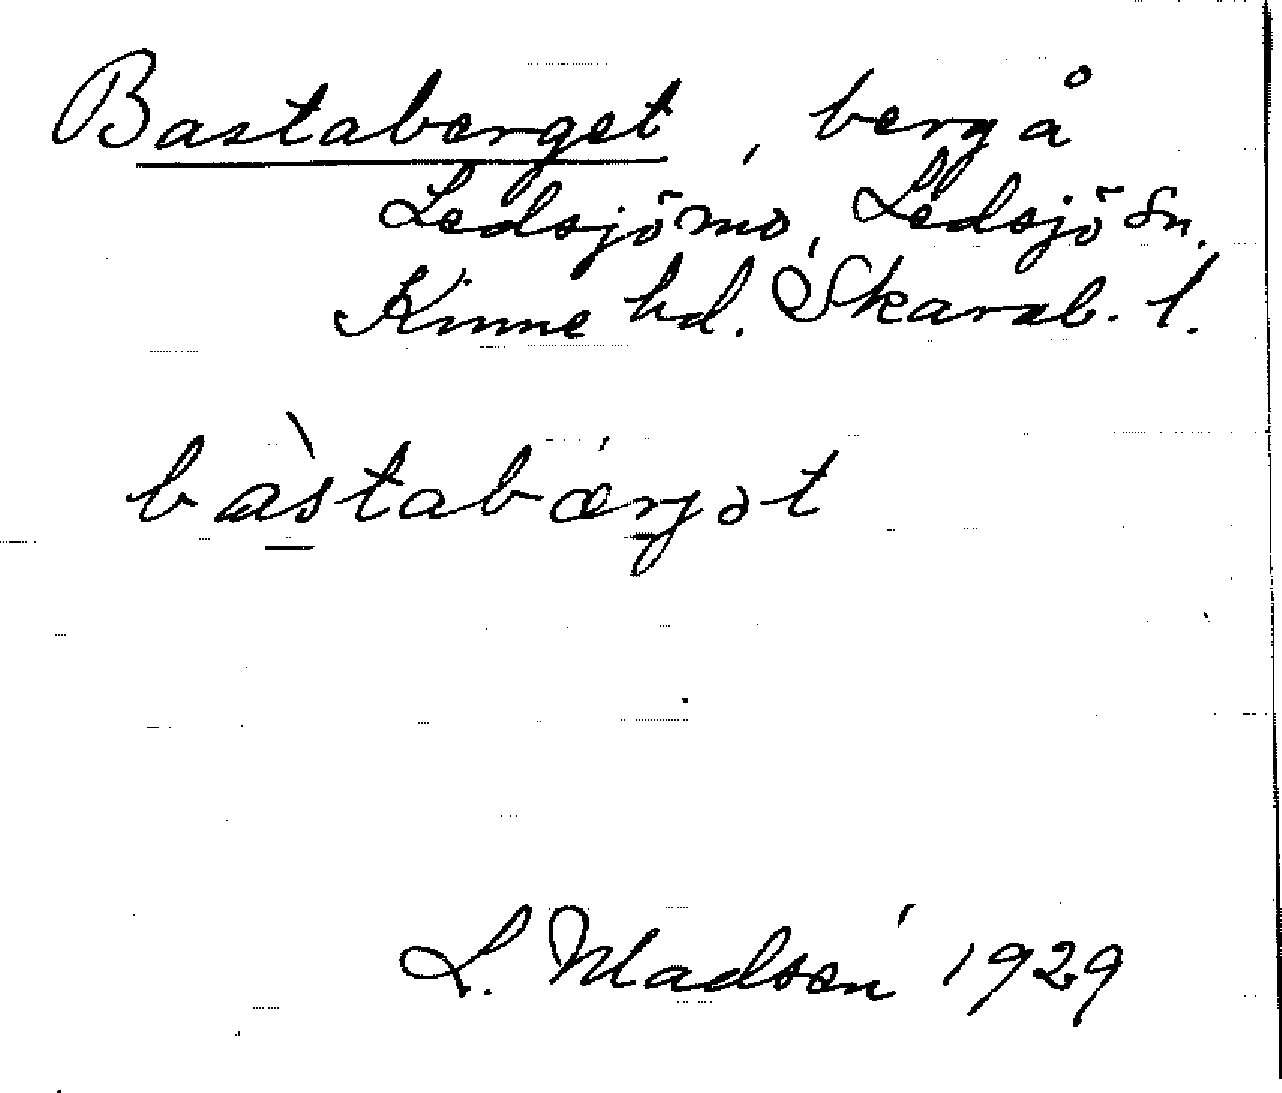 Bastaberget, berg å
Ledsjömo, Ledsjö sn.
Kinne hd. Skarab. l.
bàstabærjət
L. Madsén 1929